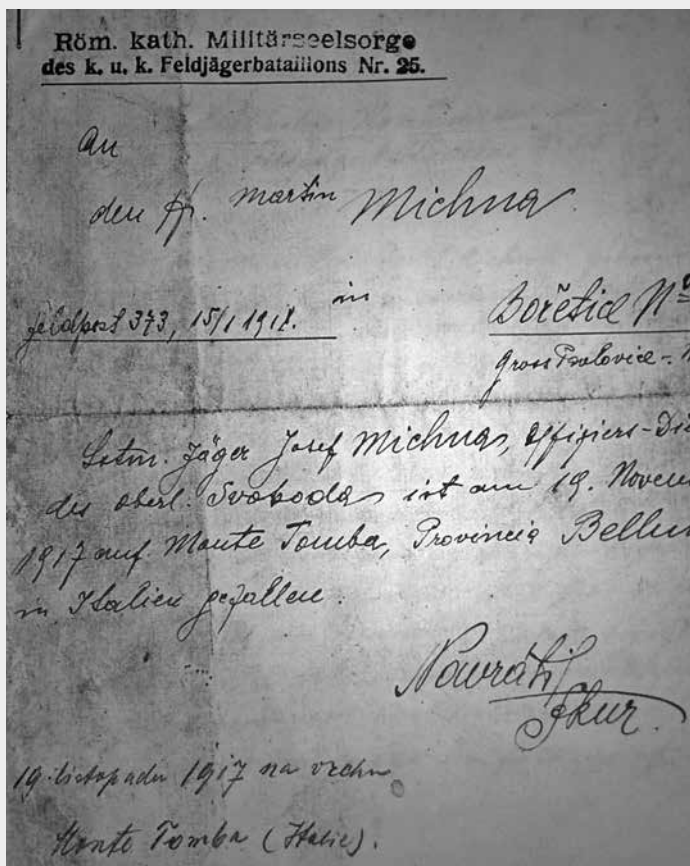 Röm. kath. Militärseelsorge
des k. u. k. Feldjägerbataillons Nr. 25.
An
den Martin Michna
in
Feldpost 373, 15/1 1918.
Bořetice N
Gross
Jäger Josef Michna, Offiziers-
des Oberl. Svoboda ist am 19. Novem
1917 auf Monte Tomba, Provincia Bellun
in Italien gefallen.
Navrátil
Fkur.
19. listopadu 1917 na vrchu
Monte Tomba (Italie).